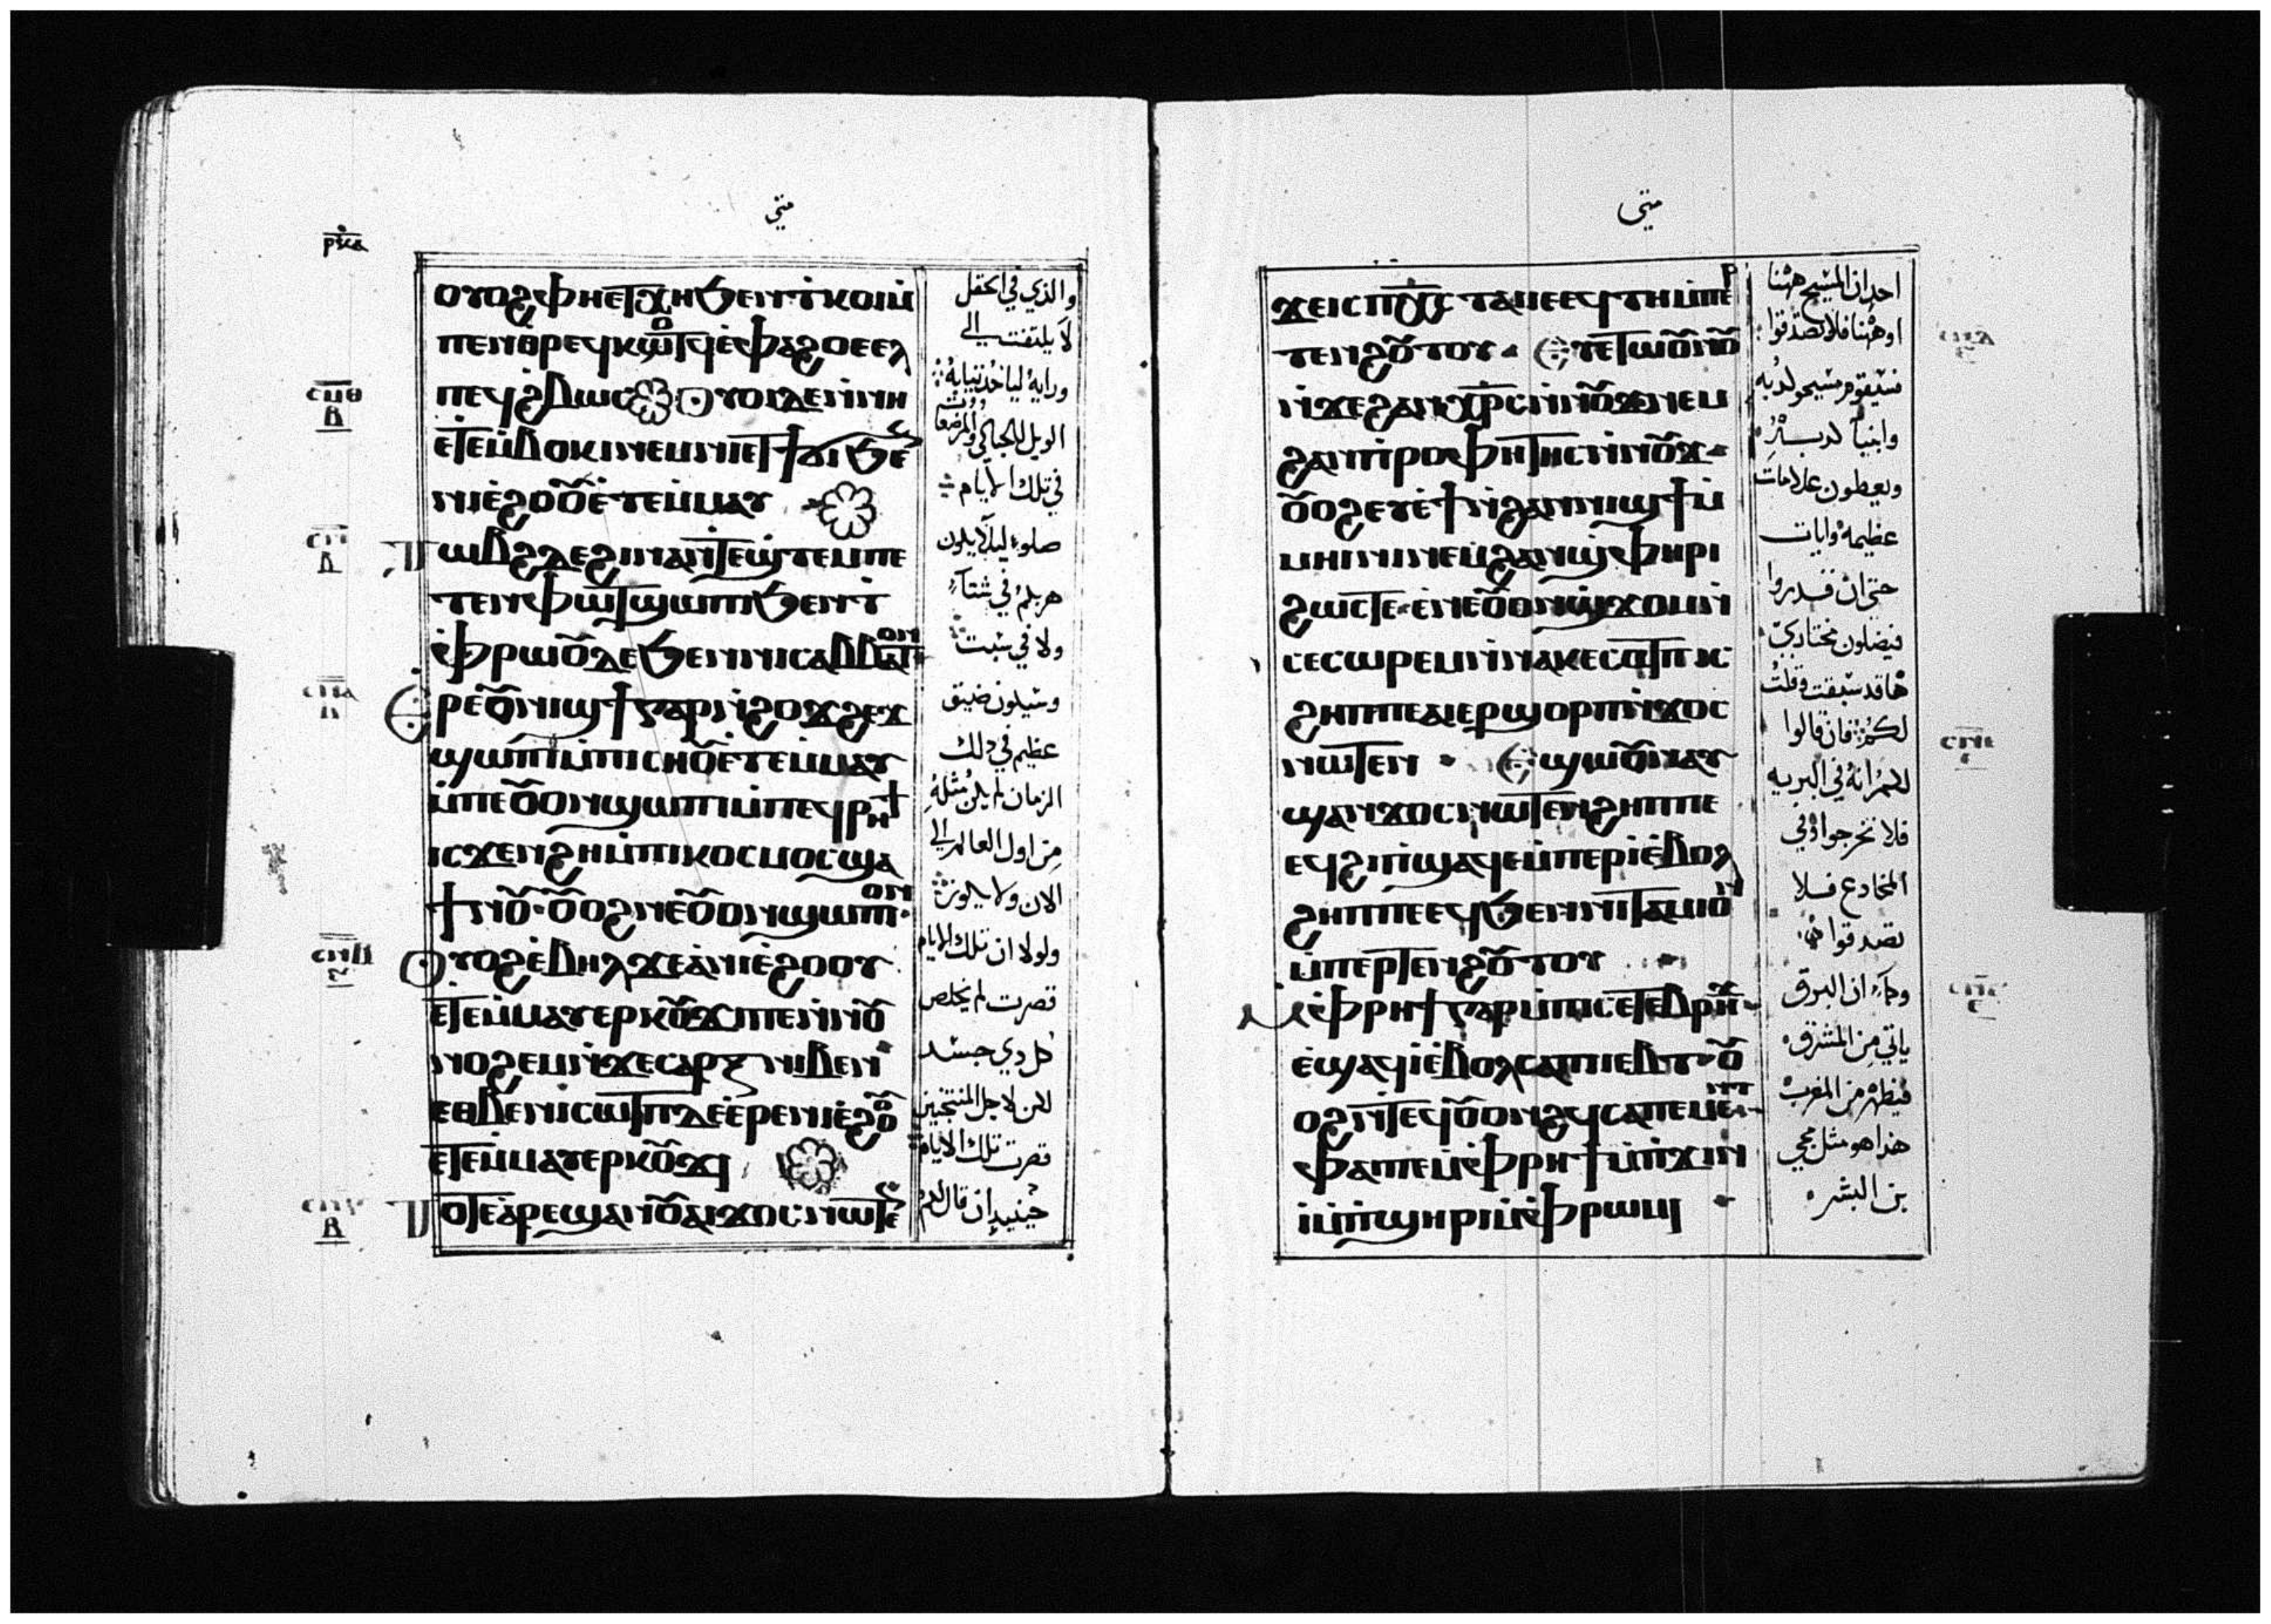 متي
ⲣ̅ⲝ̅ⲁ̅
ⲟⲩⲟϩ ⲫⲏⲉⲧⲭⲏ ϧⲉⲛ ⲧ̀ⲕⲟⲓ ⲙ̀
ⲡⲉⲛⲑⲣⲉϥⲕⲟⲧϥ ⲉ̀ⲫⲁϩⲟⲩ ⲉⲉⲗ
ⲡⲉϥϩⲃⲱⲥ ⲟⲩⲟⲓ ⲇⲉ ⲛ̀ⲛⲏ
ⲉⲧⲉⲙ̀ⲃⲟⲕⲓ ⲛⲉⲙ ⲛⲏⲉⲧϯϭⲓ ϧⲉⲛ
ⲛⲓⲉ̀ϩⲟⲟⲩ ⲉ̀ⲧⲉⲙ̀ⲙⲁⲩ
ⲧⲱⲃϩ ⲇⲉ ϩⲓⲛⲁ ⲛ̀ⲧⲉϣⲧⲉⲙⲡⲉ
ⲧⲉⲛⲫⲱⲧ ϣⲱⲡⲓ ϧⲉⲛ ⲧ̀
ⲫ̀ⲣⲱ ⲟⲩⲇⲉ ϧⲉⲛ ⲛⲓⲥⲁⲃⲃⲁⲧⲟⲛ
ⲉ̀ⲣⲉ ⲟⲩⲛⲓϣϯ ⲅⲁⲣ ⲛ̀ϩⲟϫϩⲉϫ
ϣⲱⲡⲓ ⲙ̀ⲡⲓⲥⲏⲟⲩ ⲉ̀ⲧⲉⲙ̀ⲙⲁⲩ
ⲙ̀ⲡⲉ ⲟⲩⲟⲛ ϣⲱⲡⲓ ⲙ̀ⲡⲉϥⲣⲏϯ
ⲓⲥϫⲉⲛ ϩⲏ ⲙ̀ⲡⲓⲕⲟⲥⲙⲟⲥ ϣⲁ
ϯⲛⲟⲩ ⲟⲩⲟϩ ⲛⲉ ⲟⲩⲟⲛ ϣⲱⲡⲓ ⲟⲛ
ⲟⲩⲟϩ ⲉ̀ⲃⲏⲗ ϫⲉ ⲁ̀ ⲛⲓⲉ̀ϩⲟⲟⲩ
ⲉ̀ⲧⲉⲙ̀ⲙⲁⲩ ⲉⲣⲕⲟⲩϫⲓ ⲡⲉ ⲛ̀ⲛⲟⲩ
ⲛⲟϩⲉⲙ ⲛ̀ϫⲉ ⲥⲁⲣⲝ ⲛⲓⲃⲉⲛ
ⲉⲑⲃⲉ ⲛⲓⲥⲱⲧⲡ ⲇⲉ ⲉ̀ⲣⲉ ⲛⲓⲉ̀ϩⲟⲟⲩ
ⲉ̀ⲧⲉⲙ̀ⲙⲁⲩ ⲉⲣⲕⲟⲩϫⲓ
ⲧⲟⲧⲉ ⲁ̀ⲣⲉϣⲁⲛ ⲟⲩⲁⲓ ϫⲟⲥ ⲛⲱⲧⲉⲛ
والذي في الحقل
لا يلتفت الي
ورايه لياخذ ثيابه
الويل للحبالي والمرضعات
في تلك الايام
صلوا ليلا يكون
هربكم في شتاء
ولا في سبت
وسيكون ضيق
عظيم في ذلك
الزمان لم يكن مثله
من اول العالم الي
الان ولا يكون
ولولا ان تلك الايام
قصرت لم يخلص
كل ذي جسد
لكن لاجل المنتخبين
قصرت تلك الايام
حينيذ ان قال لكم
ⲥ̅ⲡ̅ⲑ̅
ⲃ̅
ⲥ̅ϥ̅
ⲥ̅ϥ̅ⲁ̅
ⲥ̅ϥ̅ⲃ̅
ⲥ̅ϥ̅ⲅ̅
ⲃ̅
متي
ϫⲉ ⲓⲥ ⲡⲭ̅ⲥ̅ ⲧⲁⲓ ⲓⲉ ⲉϥⲧⲏ ⲙ̀ⲡⲉⲣ
ⲧⲉⲛϩⲟⲩⲧⲟⲩ ⲉⲩⲉ̀ⲧⲱⲟⲩⲛⲟⲩ
ⲛ̀ϫⲉ ϩⲁⲛⲭ̅ⲣ̅ⲥ̅ ⲛ̀ⲛⲟⲩϫ ⲛⲉⲙ
ϩⲁⲛⲡ̀ⲣⲟⲫⲏⲧⲏⲥ ⲛ̀ⲛⲟⲩϫ
ⲟⲩⲟϩ ⲉⲩⲉ̀ϯ ⲛ̀ϩⲁⲛⲛⲓϣϯ ⲙ̀
ⲙⲏⲓⲛⲓ ⲛⲉⲙ ϩⲁⲛϣ̀ⲫⲏⲣⲓ
ϩⲱⲥⲧⲉ ⲉ̀ⲛⲉ ⲟⲩⲟⲛ ϣ̀ϫⲟⲙ ⲛ̀
ⲥⲉⲥⲱⲣⲉⲙ ⲛ̀ⲛⲁⲕⲉⲥⲱⲧⲡ ⲓⲥ
ϩⲏⲡⲡⲉ ⲁⲓⲉⲣϣⲟⲣⲡ ⲛ̀ϫⲟⲥ
ⲛⲱⲧⲉⲛ ⲉϣⲱⲡ ⲟⲩⲛ ⲁⲩ
ϣⲁⲛϫⲟⲥ ⲛⲱⲧⲉⲛ ϩⲏⲡⲡⲉ
ⲉϥϩⲓ ⲡ̀ϣⲁϥⲉ ⲙ̀ⲡⲉⲣⲓ ⲉ̀ⲃⲟⲗ
ϩⲏⲡⲡⲉ ⲉϥϧⲉⲛ ⲛⲓⲧⲁⲙⲓⲟⲛ
ⲙ̀ⲡⲉⲣⲧⲉⲛϩⲟⲩⲧⲟⲩ
ⲙ̀ⲫ̀ⲣⲏϯ ⲅⲁⲣ ⲙ̀ⲡⲓⲥⲉⲧⲉⲃⲣⲏϫ
ⲉ̀ϣⲁϥⲓ ⲉ̀ⲃⲟⲗ ⲥⲁ ⲡⲓⲉⲃⲧ ⲟⲩ
ⲟϩ ⲛ̀ⲧⲉϥⲟⲩⲟⲛϩϥ ⲥⲁ ⲡⲉⲙⲉⲛⲧ
ⲫⲁⲓ ⲡⲉ ⲙ̀ⲫ̀ⲣⲏϯ ⲙ̀ⲡ̀ϫⲓⲛ
ⲓ̀ ⲙ̀ⲡ̀ϣⲏⲣⲓ ⲙ̀ⲫ̀ⲣⲱⲙⲓ
احد ان المسيح ههنا
او ههنا فلا تصدقوا
سيقوم مسيحو كذبه
وانبيا كذبه
ويعطون علامات
عظيمه وايات
حتي ان قدروا
فيضلون مختاريي
هاقد سبقت وقلت
لكم فان قالوا
لكم انه في البريه
فلا تخرجوا وفي
المخادع فلا
تصدقوا
وكما ان البرق
ياتي من المشرق
فيظهر من المغرب
هذا هو مثل مجي
بن البشر